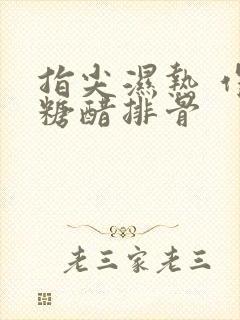 指尖濕熱
糖醋排骨
老三家老三